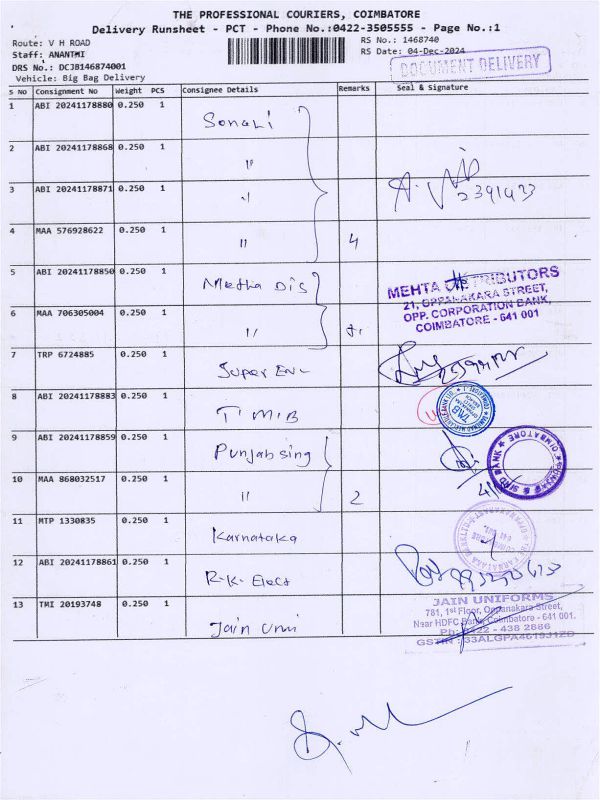 THE PROFESSIONAL COURIERS, COIMBATORE
Delivery Runsheet - PCT - Phone No.:0422-3505555 - Page No.:1
Route: V H ROAD
RS No.: 1468740
Staff: ANANTHI
RS Date: 04-Dec-2024
DRS No.: DCJB146874001
DOCUMENT DELIVERY
Vehicle: Big Bag Delivery
S No Consignment No Weight PCS Consignee Details Remarks Seal & Signature
1 ABI 20241178880 0.250 1 Sonali
2 ABI 20241178868 0.250 1 "
3 ABI 20241178871 0.250 1 "
4 MAA 576928622 0.250 1 " 4
5 ABI 20241178850 0.250 1 Metha Dis
MEHTA DISTRIBUTORS
21, OPPANAKARA STREET,
OPP. CORPORATION BANK,
COIMBATORE - 641 001
6 MAA 706305004 0.250 1 "
7 TRP 6724885 0.250 1 Super En
8 ABI 20241178883 0.250 1 TMB
9 ABI 20241178859 0.250 1 Punjabsing
10 MAA 868032517 0.250 1 " 2
11 MTP 1330835 0.250 1 Karnataka
12 ABI 20241178861 0.250 1 R.K. Elect
13 TMI 20193748 0.250 1 Jain Uni
JAIN UNIFORMS
781, 1st Floor, Oppanakara Street,
Near HDFC Bank, Coimbatore - 641 001.
Ph: 0422 - 438 2886